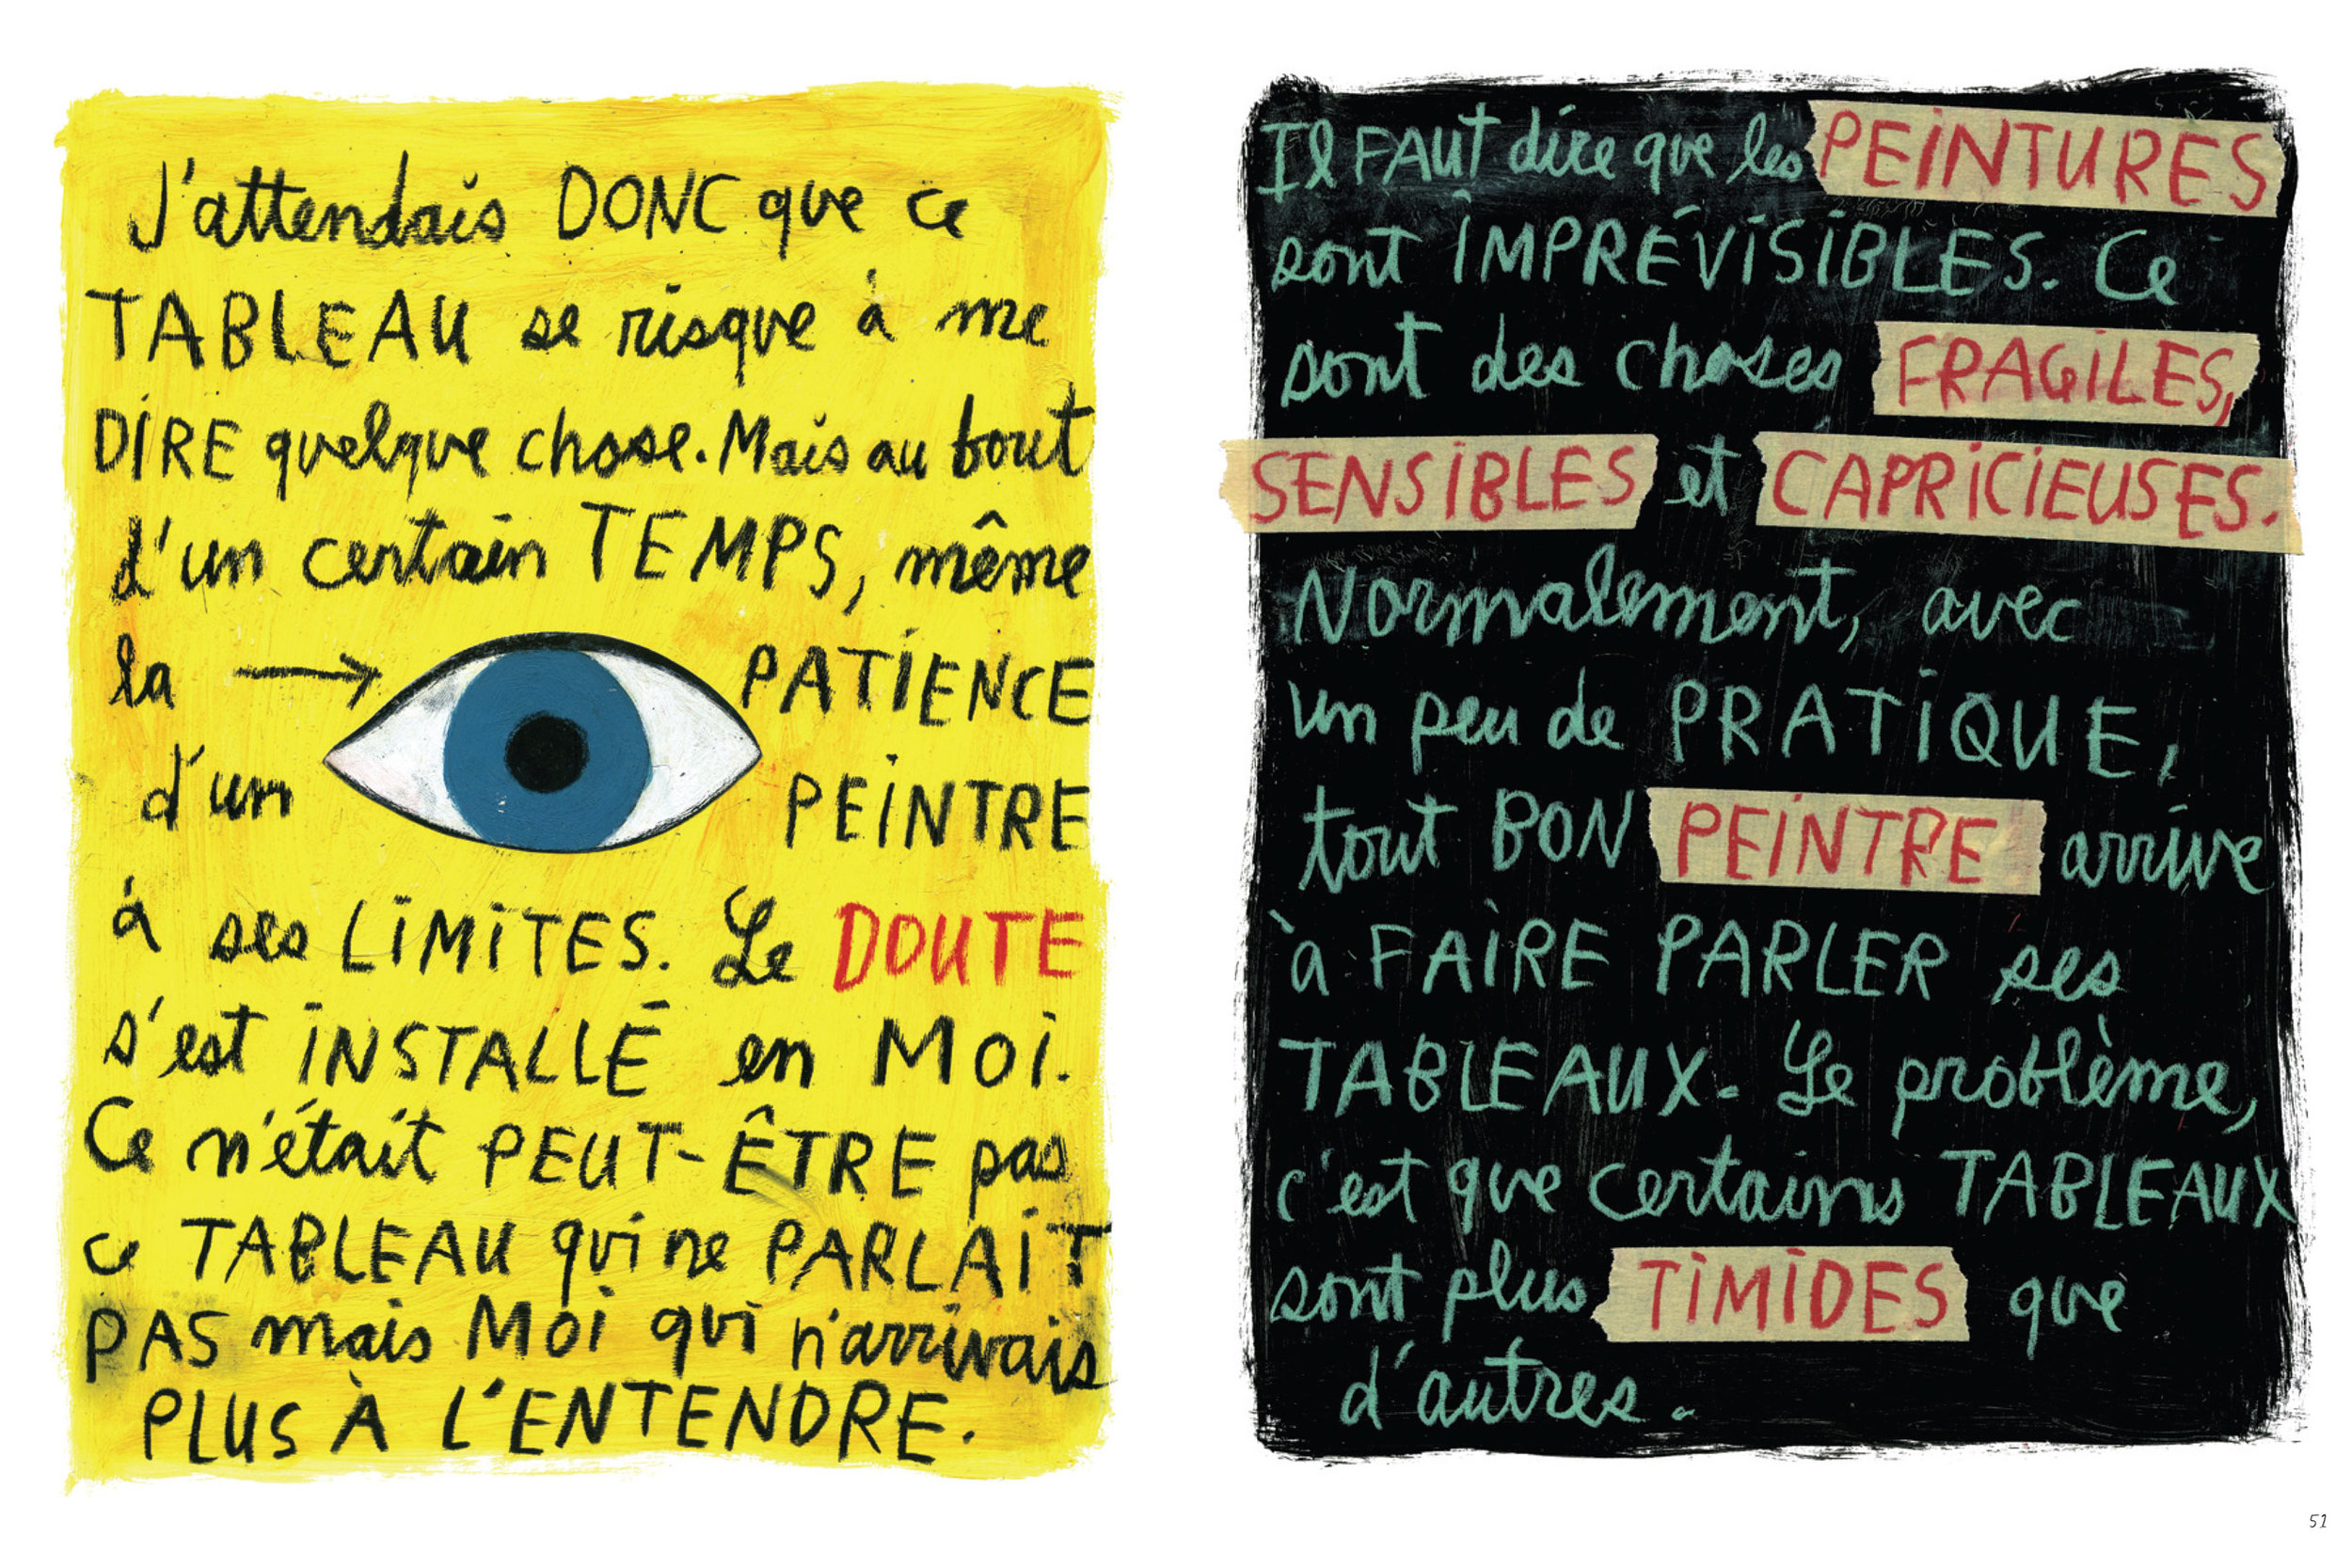 J'attendais DONC que ce
TABLEAU se risque à me
DIRE quelque chose. Mais au bout
d'un certain TEMPS, même
la → PATIENCE
d'un PEINTRE
à ses LIMITES. Le DOUTE
s'est INSTALLÉ en MOI.
Ce n'était PEUT-ÊTRE pas
ce TABLEAU qui ne PARLAIT
PAS mais MOI qui n'arrivais
PLUS À L'ENTENDRE.
Il FAUT dire que les PEINTURES
sont IMPRÉVISIBLES. Ce
sont des choses FRAGILES,
SENSIBLES et CAPRICIEUSES.
Normalement, avec
un peu de PRATIQUE,
tout BON PEINTRE arrive
à FAIRE PARLER ses
TABLEAUX. Le problème,
c'est que certains TABLEAUX
sont plus TIMIDES que
d'autres.
51